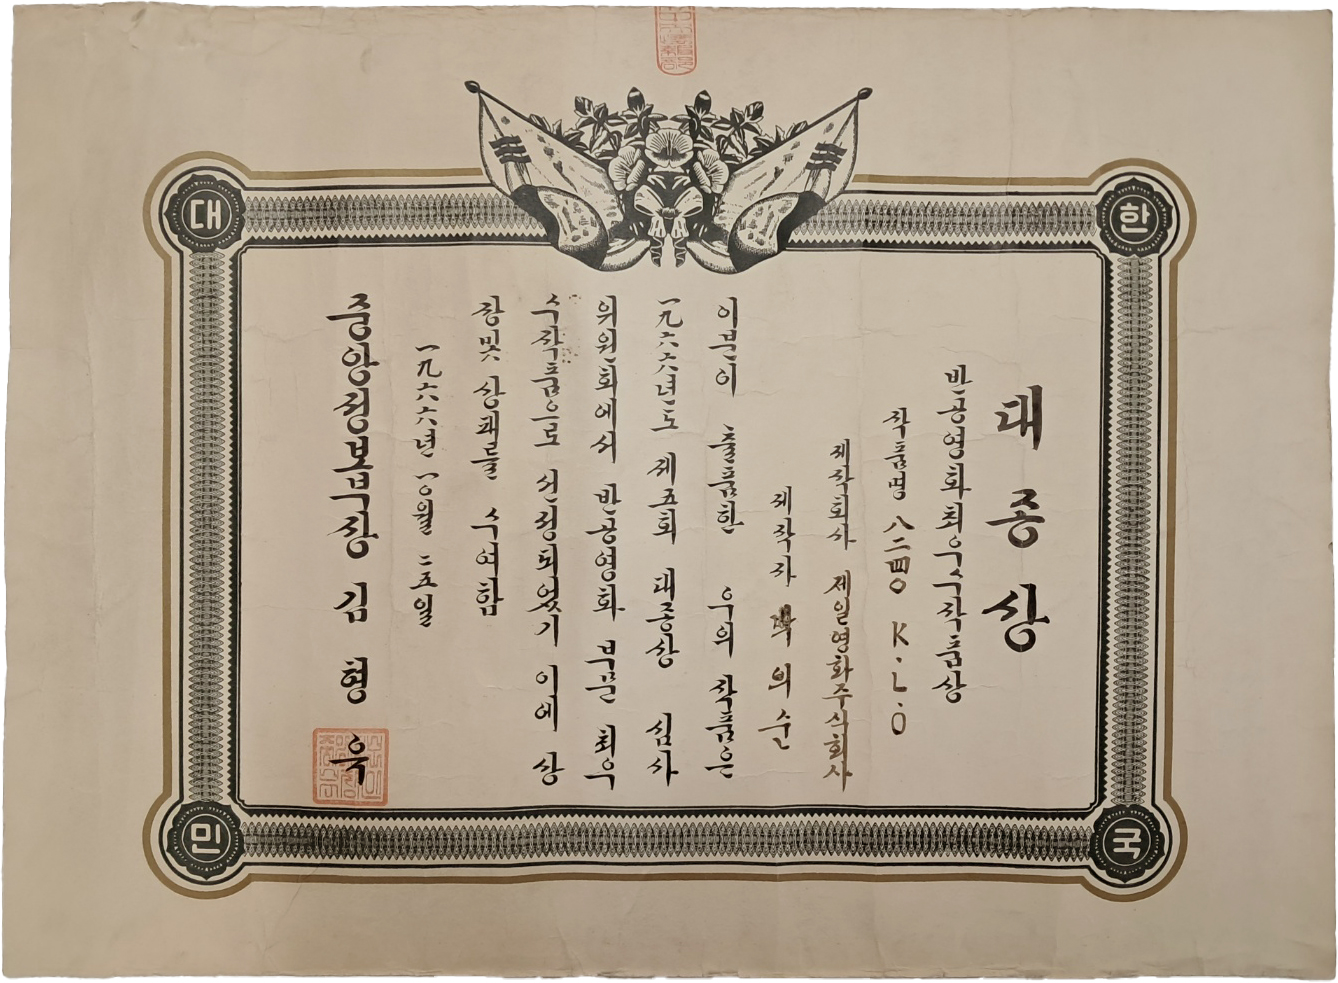 대종상
반공영화최우수작품상
작품명 八二四〇 K.L.O
제작회사 제일영화주식회사
제작자 의순
이분이 출품한 우의 작품은
一九六六년도 제五회 대종상 심사
위원회에서 반공영화 부문 최우
수작품으로 선정되었기 이에 상
장및 상패를 수여함
一九六六년 一〇월 二五일
중앙정보부장 김형욱
한
국
대
민